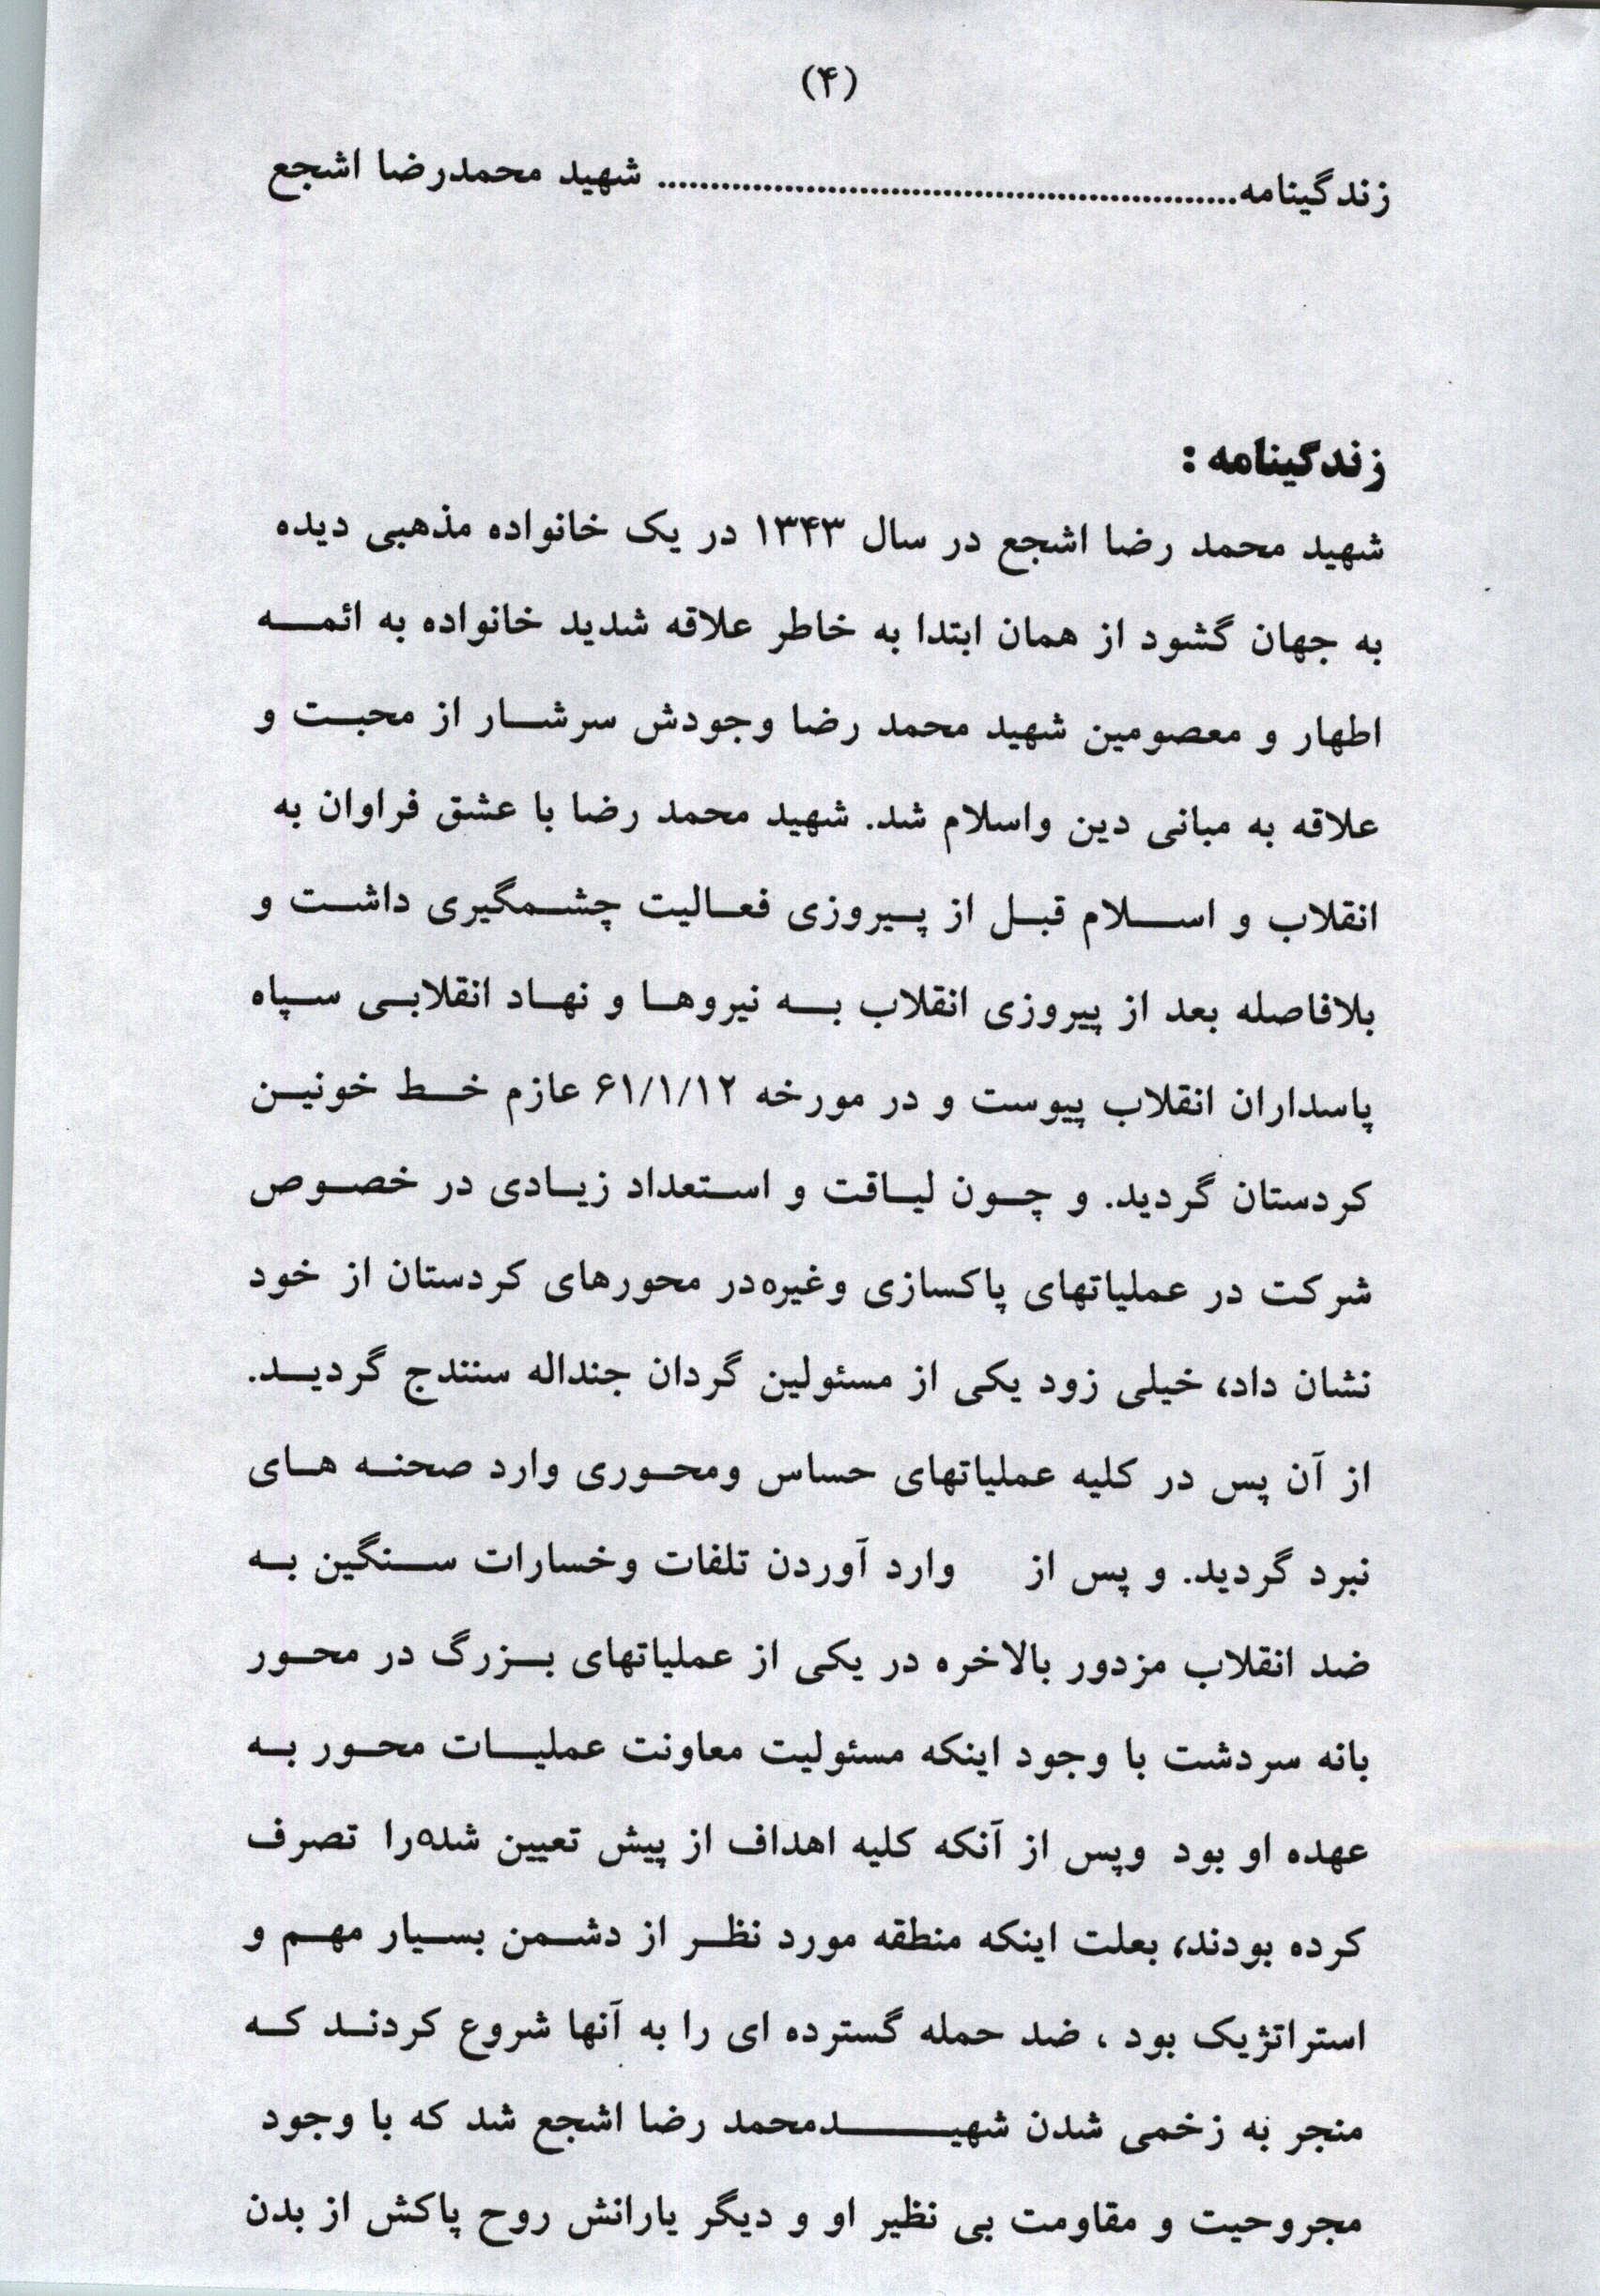 (۴)
زندگینامه........................................................ شهید محمدرضا اشجع
زندگینامه :
شهید محمد رضا اشجع در سال ۱۳۴۳ در یک خانواده مذهبی دیده
به جهان گشود از همان ابتدا به خاطر علاقه شدید خانواده به ائمه
اطهار و معصومین شهید محمد رضا وجودش سرشار از محبت و
علاقه به مبانی دین واسلام شد. شهید محمد رضا با عشق فراوان به
انقلاب و اسلام قبل از پیروزی فعالیت چشمگیری داشت و
بلافاصله بعد از پیروزی انقلاب به نیروها و نهاد انقلابی سپاه
پاسداران انقلاب پیوست و در مورخه ۶۱/۱/۱۲ عازم خط خونین
کردستان گردید. و چون لیاقت و استعداد زیادی در خصوص
شرکت در عملیاتهای پاکسازی وغیره‌در محورهای کردستان از خود
نشان داد، خیلی زود یکی از مسئولین گردان جنداله سنندج گردید.
از آن پس در کلیه عملیاتهای حساس ومحوری وارد صحنه های
نبرد گردید. و پس از وارد آوردن تلفات وخسارات سنگین به
ضد انقلاب مزدور بالاخره در یکی از عملیاتهای بزرگ در محور
بانه سردشت با وجود اینکه مسئولیت معاونت عملیات محور به
عهده او بود وپس از آنکه کلیه اهداف از پیش تعیین شده‌را تصرف
کرده بودند، بعلت اینکه منطقه مورد نظر از دشمن بسیار مهم و
استراتژیک بود ، ضد حمله گسترده ای را به آنها شروع کردند که
منجر به زخمی شدن شهیدمحمد رضا اشجع شد که با وجود
مجروحیت و مقاومت بی نظیر او و دیگر یارانش روح پاکش از بدن